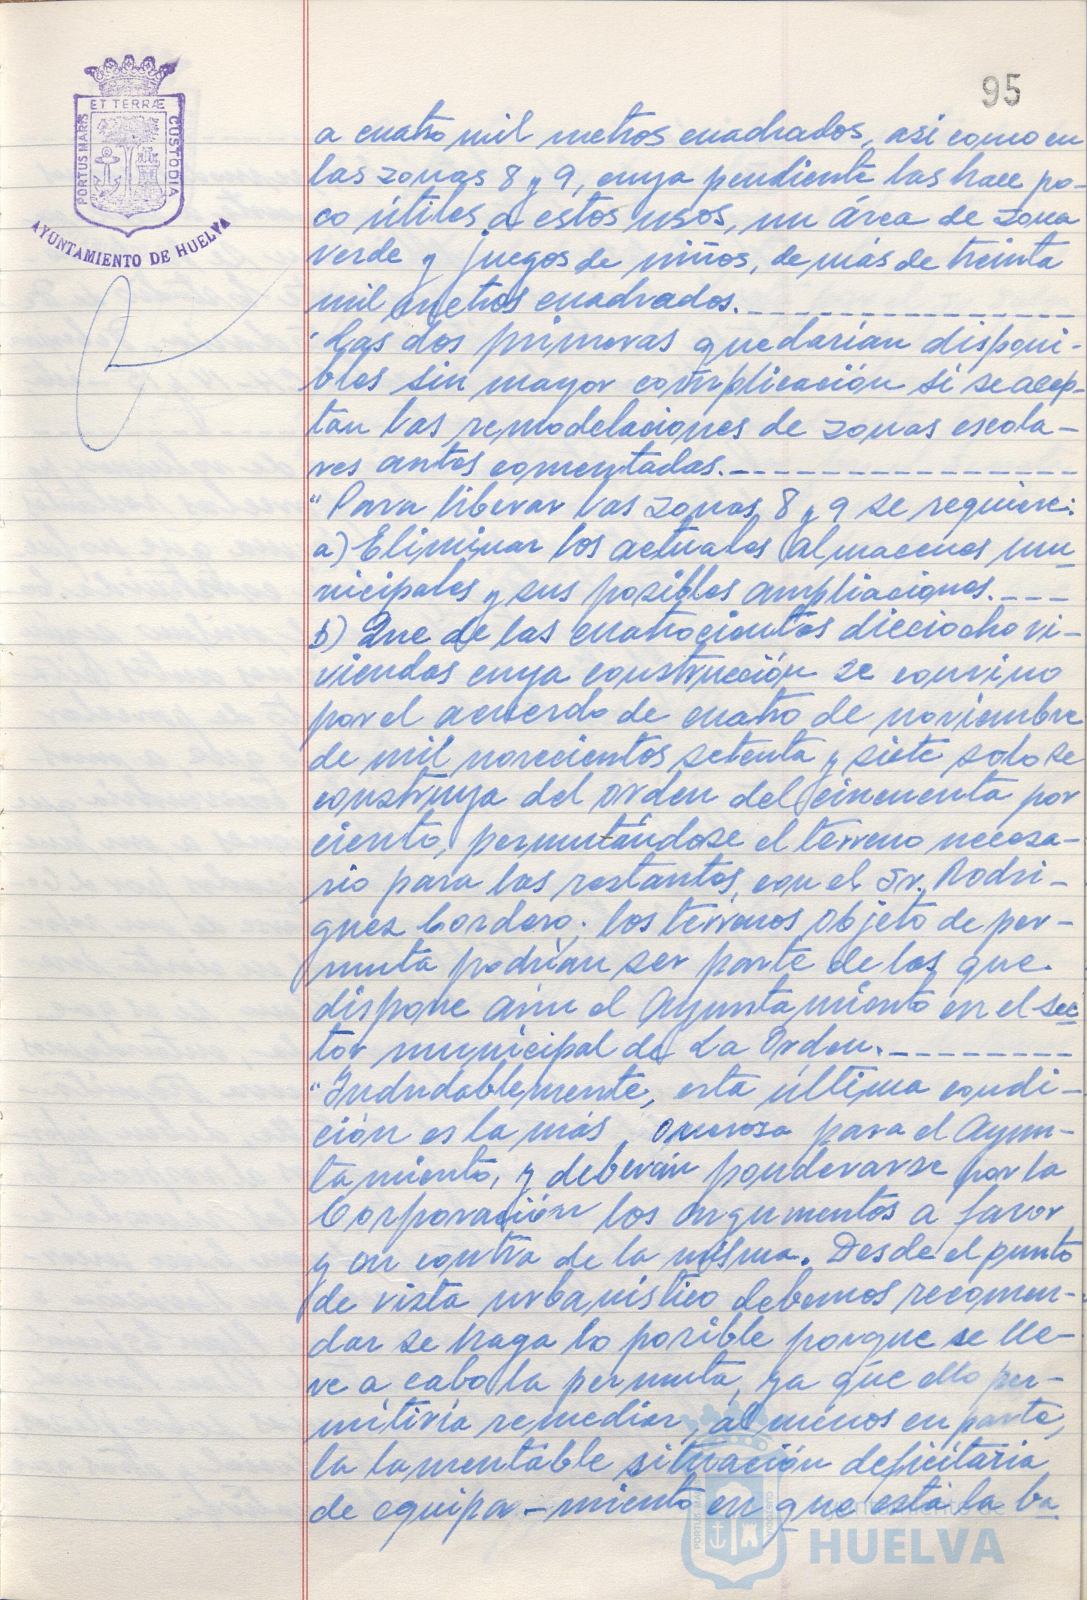 95
ET TERRÆ
PORTUS MARIS
CUSTODIA
AYUNTAMIENTO DE HUELVA
a cuatro mil metros cuadrados, asi como en
las zonas 8 y 9, cuya pendiente las hace po-
co útiles a estos usos, un área de zona
verde y juegos de niños, de más de treinta
mil metros cuadrados.
"Las dos primeras quedarían disponi-
bles sin mayor complicación si se acep-
tan las remodelaciones de zonas escola-
res antes comentadas.
"Para liberar las zonas 8 y 9 se requiere:
a) Eliminar los actuales almacenes mu-
nicipales y sus posibles ampliaciones.
b) Que de las cuatrocientas dieciocho vi-
viendas cuya construcción se convino
por el acuerdo de cuatro de noviembre
de mil novecientos setenta y siete solo se
construya del orden del cincuenta por
ciento, permutándose el terreno necesa-
rio para las restantes, con el Sr. Rodrí-
guez Cordero; los terrenos objeto de per-
muta podrían ser parte de los que
dispone aún el Ayuntamiento en el sec
tor municipal de La Orden.
"Indudablemente, esta última condi-
ción es la más onerosa para el Ayun-
tamiento, y deberán ponderarse por la
Corporación los argumentos a favor
y en contra de la misma. Desde el punto
de vista urbanístico debemos recomen-
dar se haga lo posible porque se lle-
ve a cabo la permuta, ya que ello per-
mitiría remediar, al menos en parte,
la lamentable situación deficitaria
de equipa-miento en que está la ba
Ayuntamiento de
HUELVA